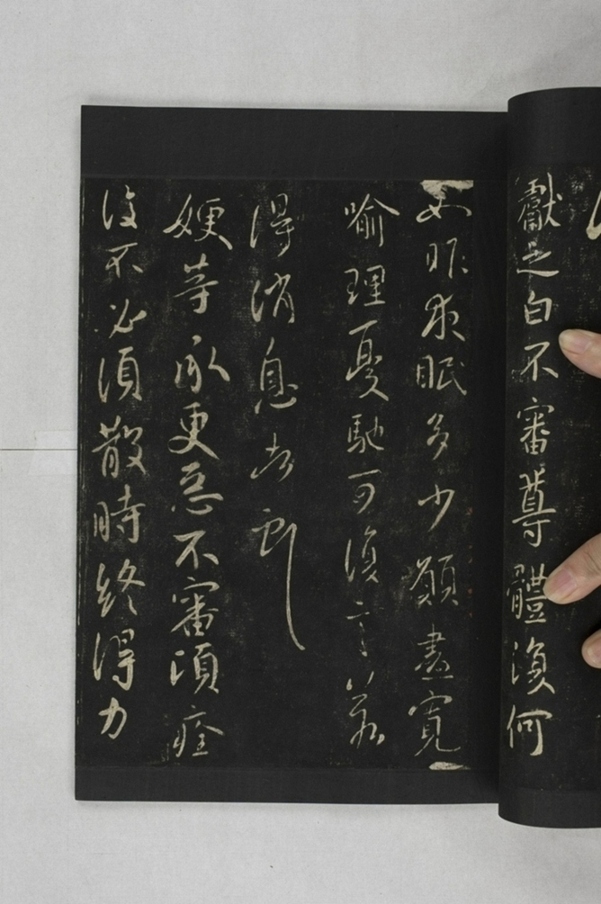 獻之白不審尊體復何
如昨夜眠多少願盡寬
喻理憂馳可復言
得消息告
嫂等承更惡不審頃痊
復不必須散時終得力